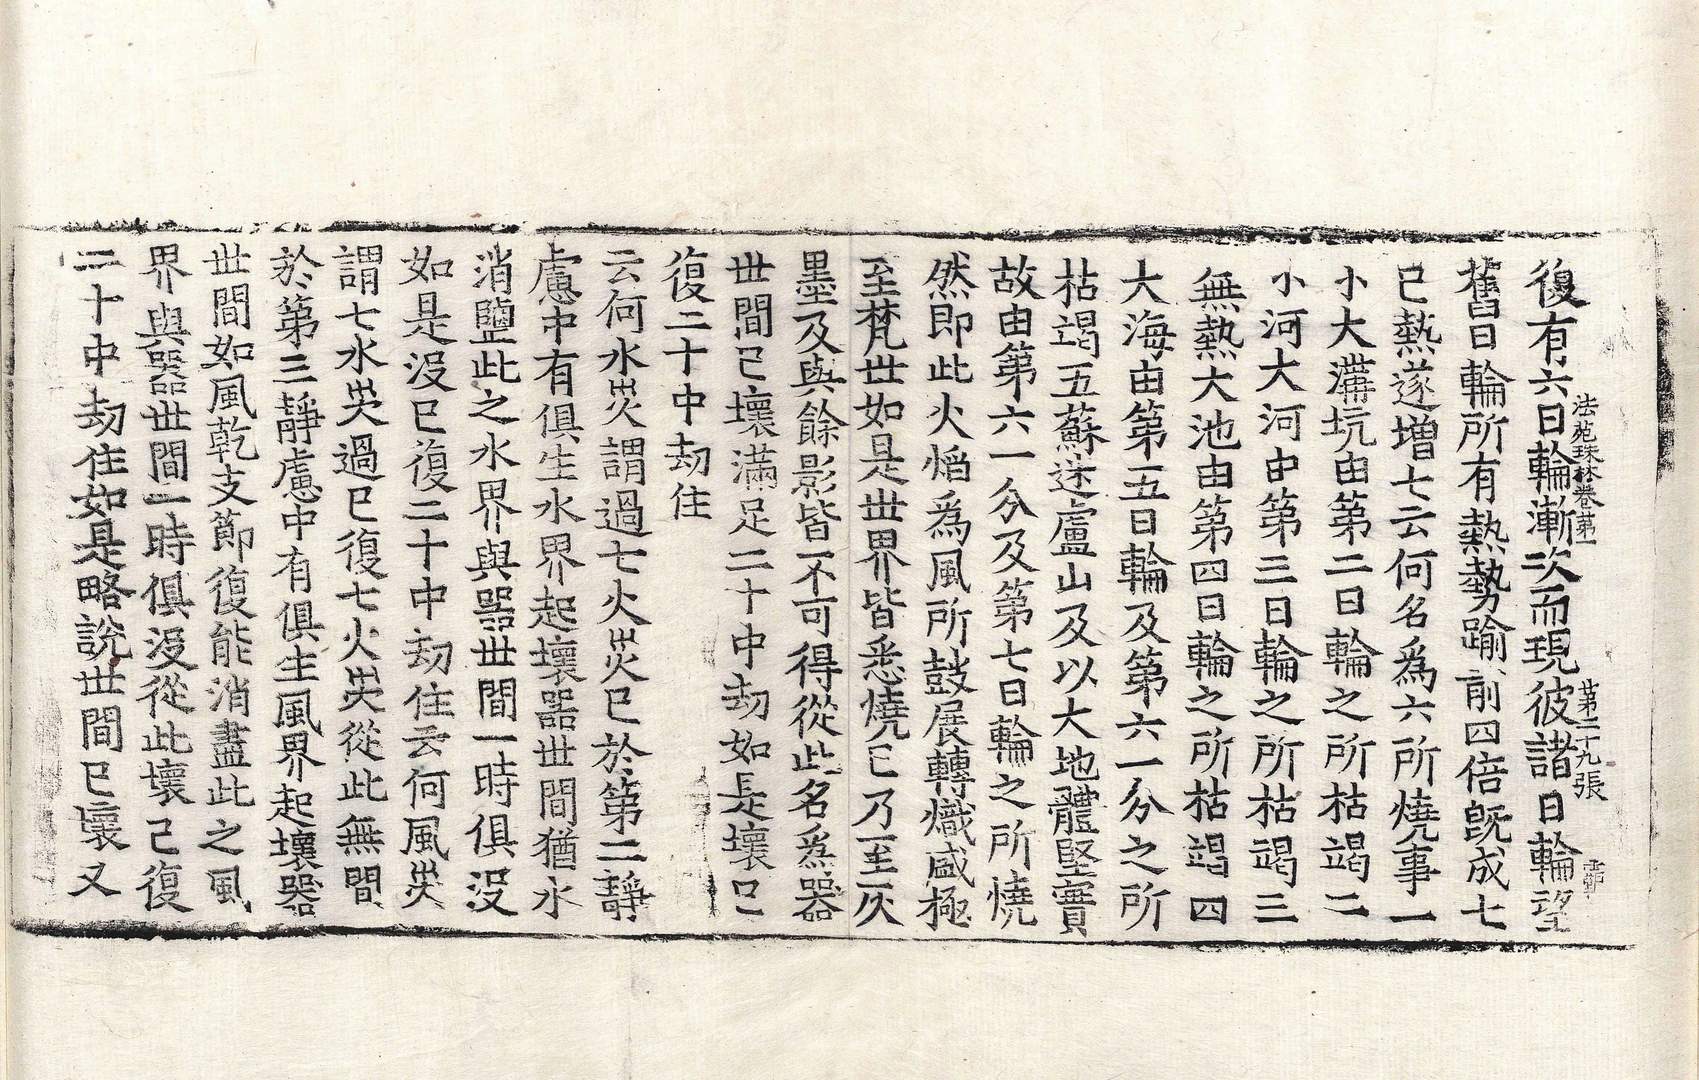 法苑珠林卷第一 第二十九張 *
復有六日輪漸次而現彼諸日輪望
舊日輪所有熱勢踰前四倍旣成七
已熱遂增七云何名爲六所燒事一
小大溝坑由第二日輪之所枯竭二
小河大河由第三日輪之所枯竭三
無熱大池由第四日輪之所枯竭四
大海由第五日輪及第六一分之所
枯竭五蘇迷盧山及以大地體堅實
故由第六一分及第七日輪之所燒
然即此火焰爲風所鼓展轉熾盛極
至梵世如是世界皆悉燒已乃至灰
墨及與餘影皆不可得從此名爲器
世間已壞滿足二十中劫如是壞已
復二十中劫住
云何水災謂過七火災已於第二靜
慮中有俱生水界起壞器世間猶水
消鹽此之水界與器世間一時俱沒
如是沒已復二十中劫住云何風災
謂七水災過已復七火災從此無間
於第三靜慮中有俱生風界起壞器
世間如風乾支節復能消盡此之風
界與器世間一時俱沒從此壞已復
二十中劫住如是略說世間已壞又